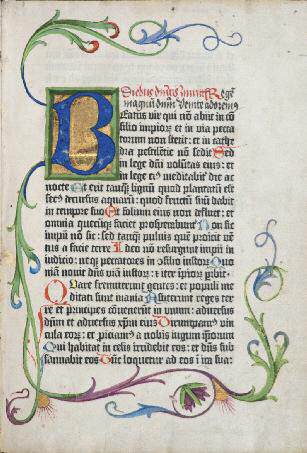 magnū dñm venite adorem9
Beatus vir qui nō abiit in cō
silio impior̄ et in via pecca
torum non stetit: et in cathe
dra pestilētie nō sedit Sed
in lege dñi volūtas eius: et
in lege ei9 meditabit᷑ die ac
nocte Et erit tanq̄ lignū quod plantatū est
secus decursus aquarū: quod fructū suū dabit
in tempore suo Et foliū eius non defluet: et
omnia quecūq̄ faciet prosperabunt᷑ Non sic
impii nō sic: sed tanq̄ puluis quē proiicit vē
tus a facie terre Ideo nō resurgūt impii in
iudicio: neq̄ peccatores in cōsilio iustor̄ Quo
niā nouit dñs viā iustor̄: et iter impior̄ peribit
Quare fremuerunt gentes: et populi me
ditati sunt inania Astiterunt reges ter
re et principes cōuenerūt in vnum: aduersus
dñm et aduersus xp̄m eius Dirumpam9 vin
cula eor̄: et proiciam9 a nobis iugum ipsorum
Qui habitat in celis irridebit eos: et dñs sub
sannabit eos Tūc loquetur ad eos ī ira sua: